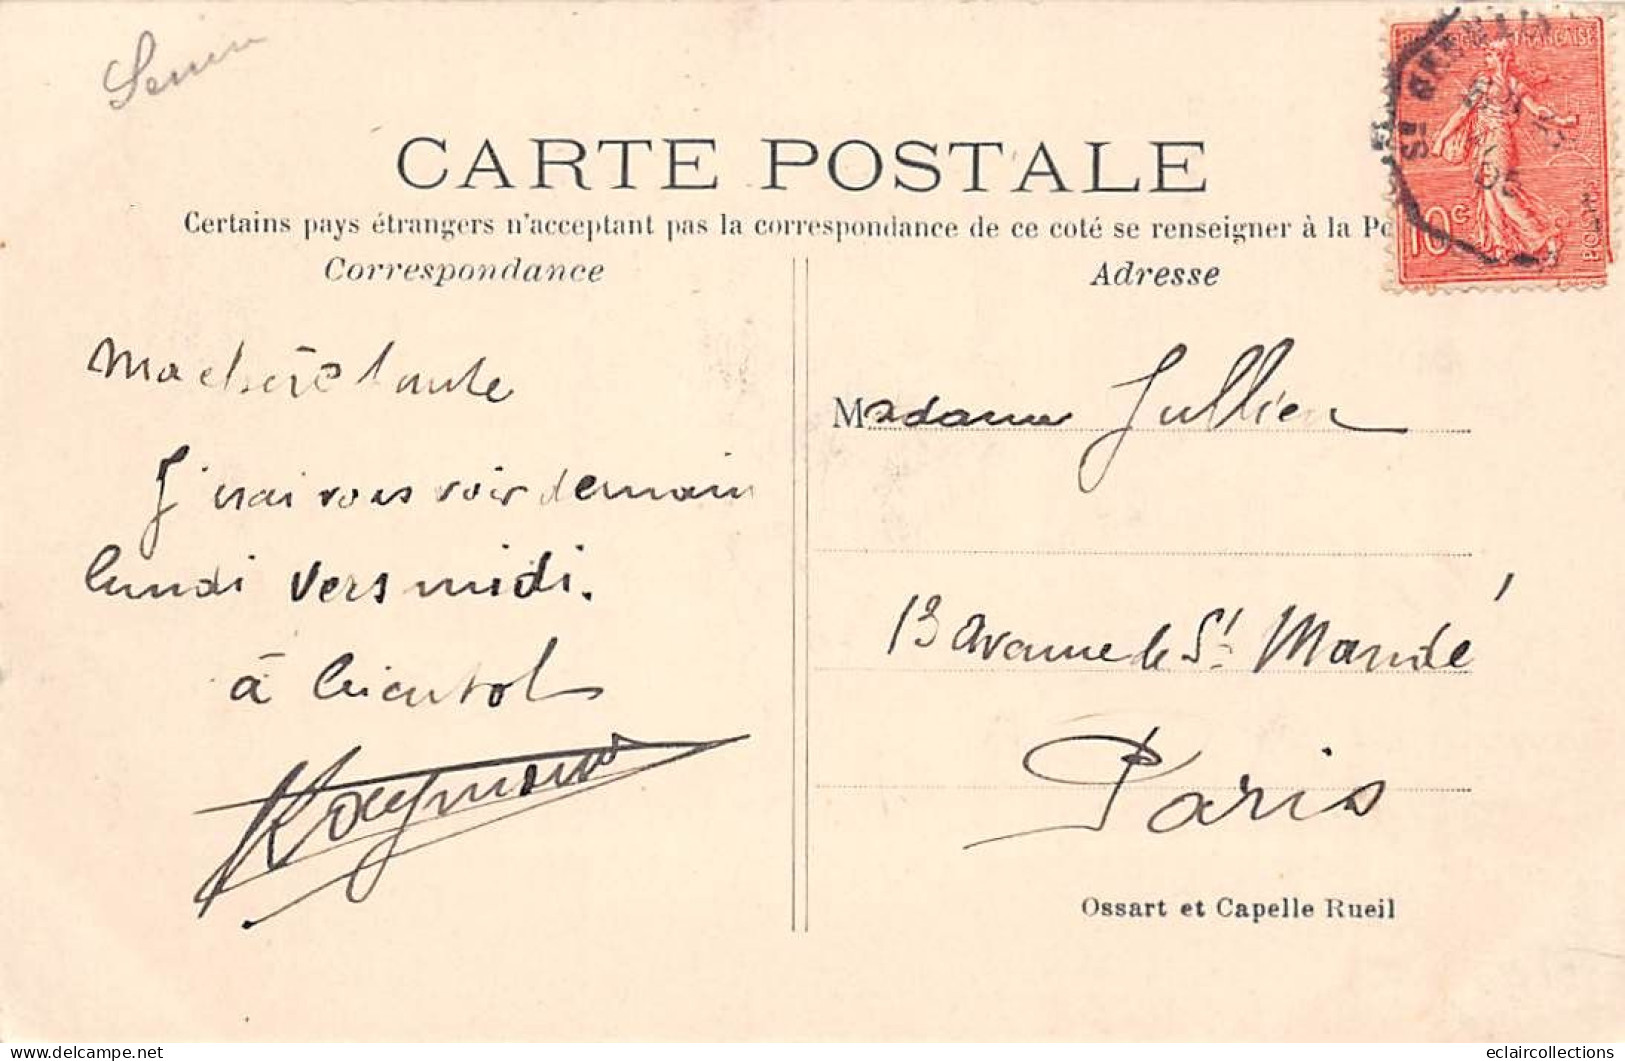 CARTE POSTALE
Certains pays étrangers n'acceptant pas la correspondance de ce coté se renseigner à la Po
Correspondance
Adresse
Ma chère tante
J'irai vous voir demain
lundi vers midi.
à bientot
Raymond
Madame Jullien
13 avenue de St Mandé
Paris
Ossart et Capelle Rueil
FRANÇAISE
10c
POSTES
St GERMAIN
05
eclaircollections
www.delcampe.net